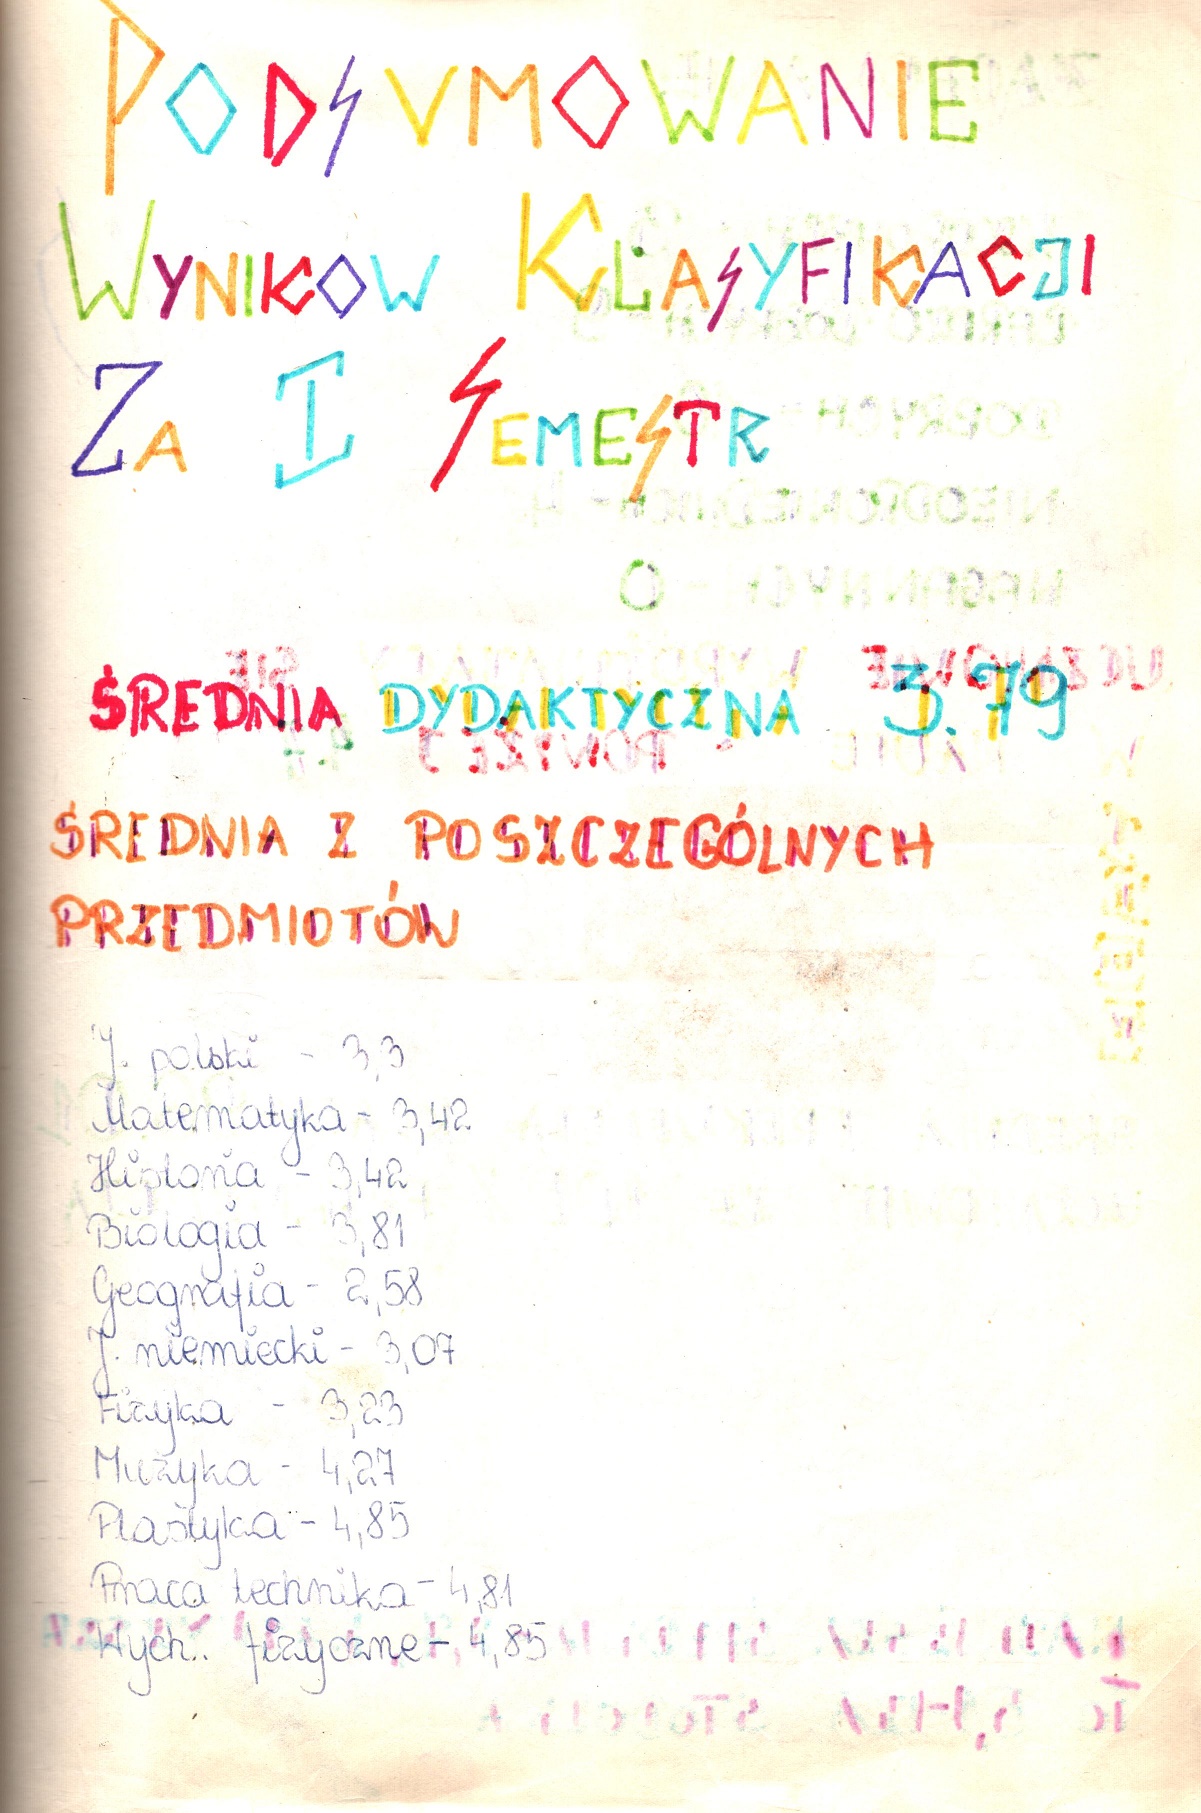 PODSUMOWANIE
WYNIKÓW KLASYFIKACJI
ZA I SEMESTR
ŚREDNIA DYDAKTYCZNA 3.79
ŚREDNIA Z POSZCZEGÓLNYCH
PRZEDMIOTÓW
J. polski - 3,3
Matematyka - 3,42
Historia - 3,42
Biologia - 3,81
Geografia - 2,58
J. niemiecki - 3,07
Fizyka - 3,23
Muzyka - 4,27
Plastyka - 4,85
Praca technika - 4,81
Wych.. fizyczne - 4,85